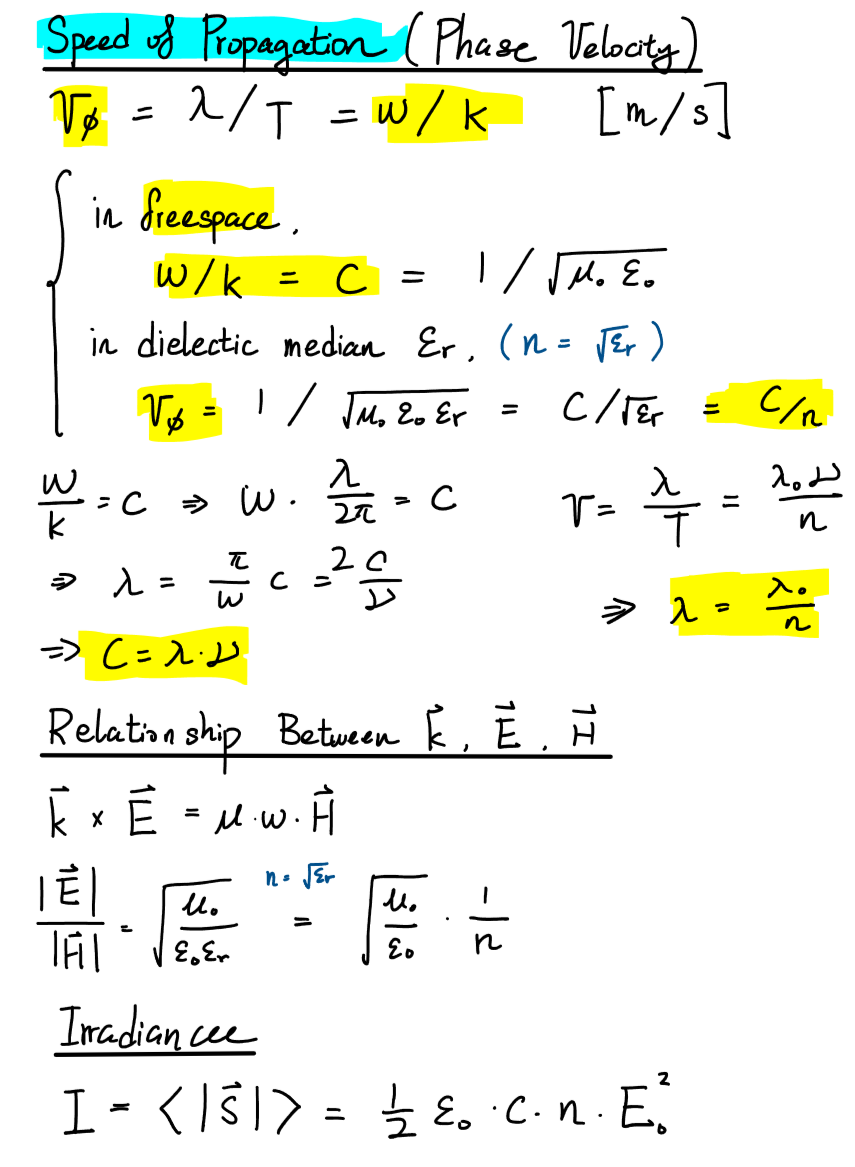 Speed of Propagation (Phase Velocity)
V_φ = λ/T = w/k [m/s]
in freespace,
w/k = C = 1/√(μ₀ ε₀)
in dielectic median εr, (n = √εr)
V_φ = 1/√(μ₀ ε₀ εr) = C/√εr = C/n
w/k = C ⇒ w · λ/2π = C
V = λ/T = λ₀ν/n
⇒ λ = π/w C = 2 C/ν
⇒ λ = λ₀/n
⇒ C = λ·ν
Relationship Between k⃗, E⃗, H⃗
k⃗ × E⃗ = μ·w·H⃗
|E⃗|/|H⃗| = √(μ₀/ε₀εr) = √(μ₀/ε₀) · 1/n
n = √εr
Irradiancee
I = <|S⃗|> = 1/2 ε₀ · C · n · E₀²